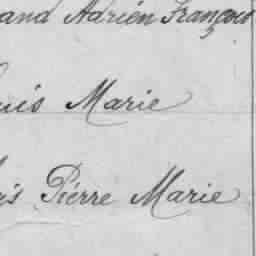 and Adrien François
uis Marie
is Pierre Marie